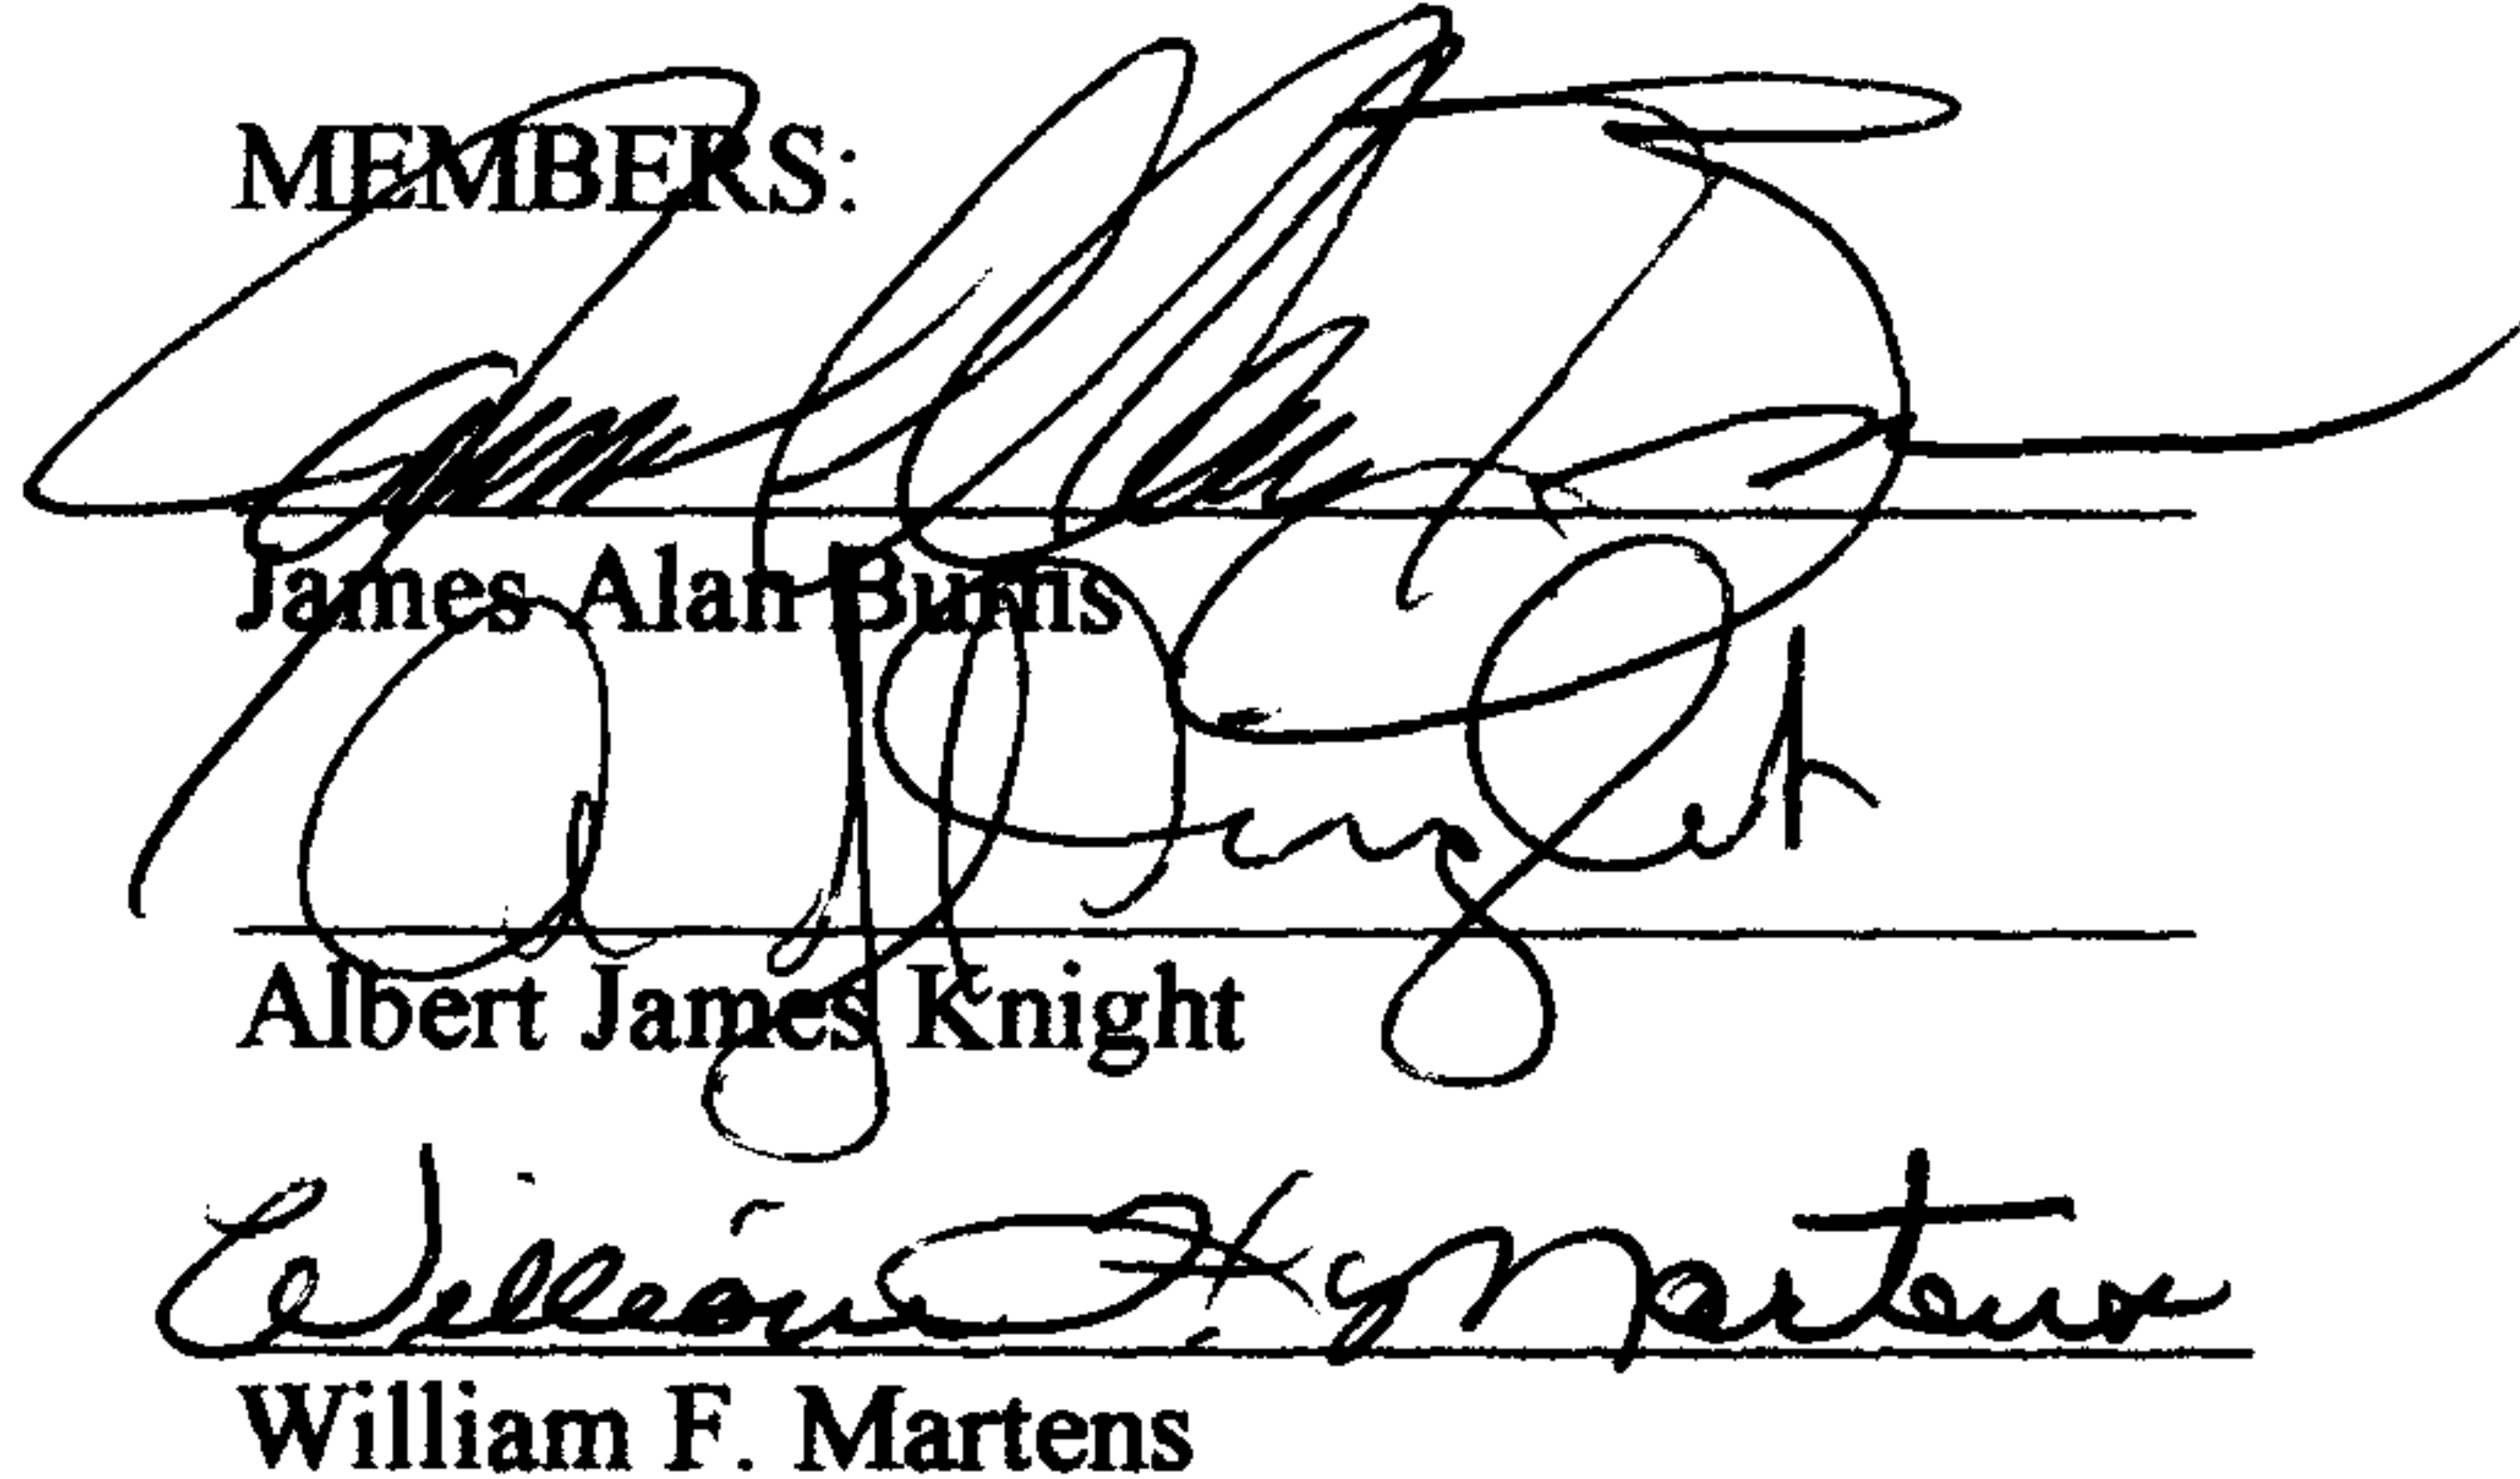 MEMBERS:
James Alan Burns
A J Knight
Albert James Knight
William F. Martens
William F. Martens